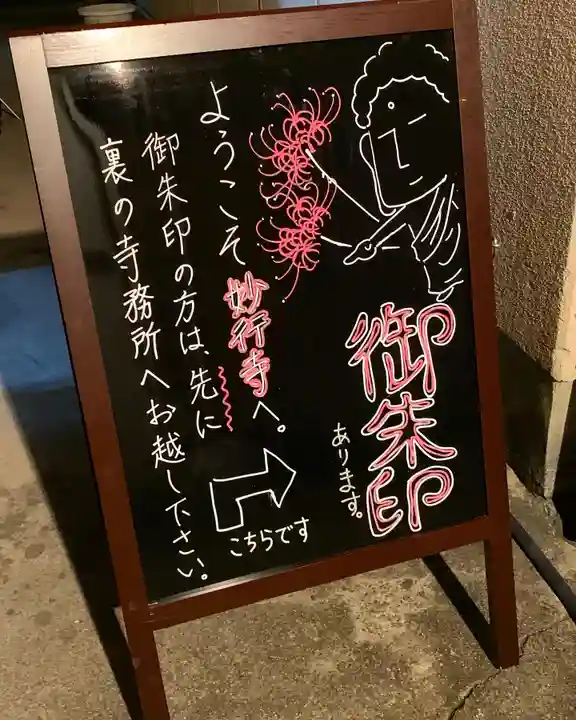 御朱印
あります。
ようこそ妙行寺へ。
御朱印の方は、先に
裏の寺務所へお越し下さい。
こちらです